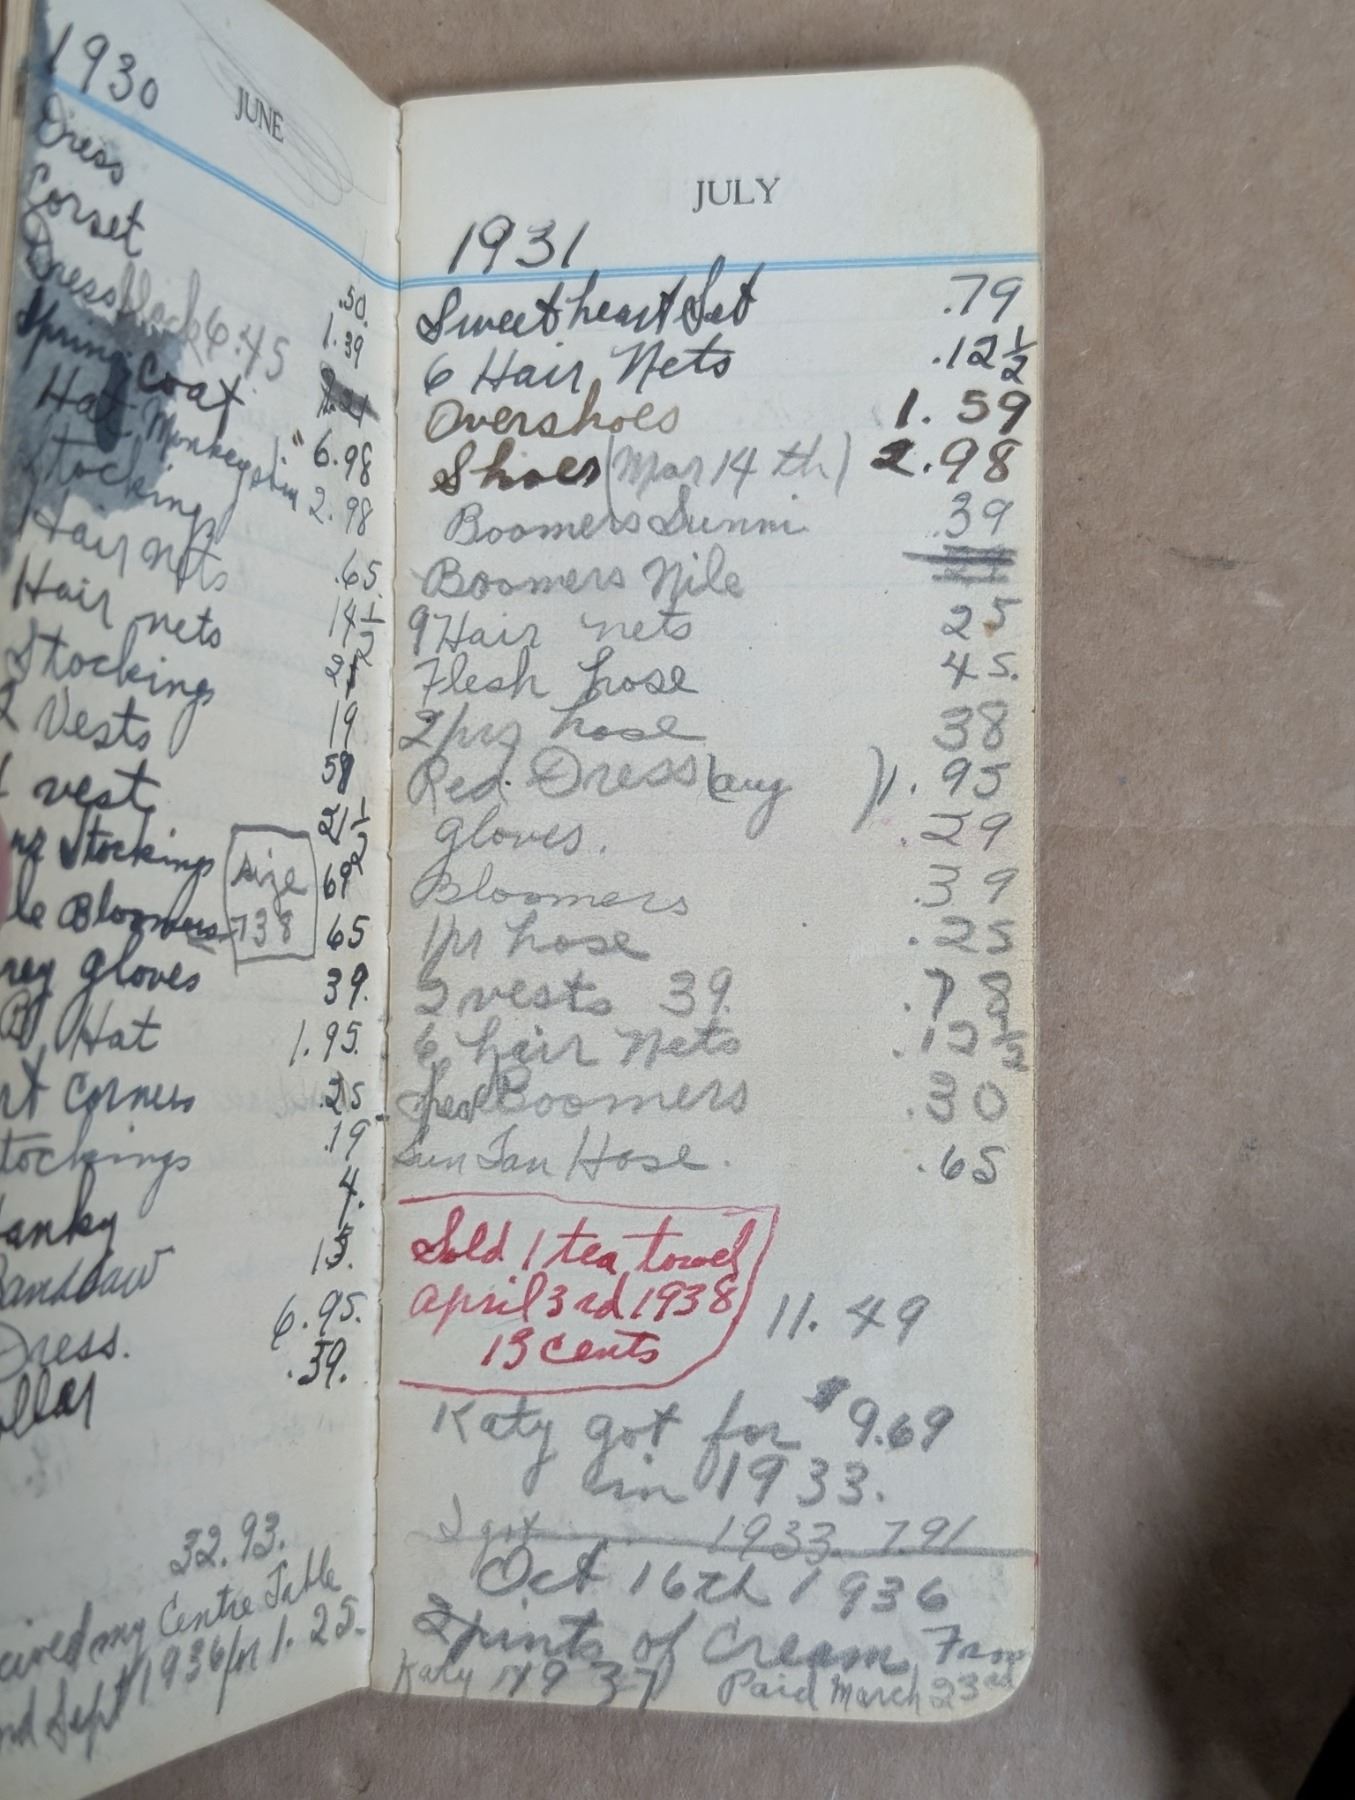 1930
JUNE
Dress .50.
Corset 1.39
Dress black 6.45
Spring Coat 6.98
Hat Monkeyskin 2.98
Stockings .65
Hair nets 14 1/2
Hair nets
Stockings 19
2 Vests
1 vest 21 1/2
Stockings 69
Bloomers 65
size 738
gloves 39.
Hat 1.95.
corners .25
tockings .19
anky 4.
15.
Dress. 6.95.
ollar .39.
32.93.
ceived my Centre Table
nd Sept 1936 for 1.25.
JULY
1931
Sweetheart Set .79
6 Hair Nets .12 1/2
Overshoes 1.59
Shoes (Mar 14 th) 2.98
Boomers Sunni .39
Boomers Nile
9 Hair nets 25
Flesh hose 45.
2 prs hose 38
Red. Dress (avy ) 1.95
gloves. .29
Bloomers .39
1 pr hose .25
2 vests 39. .78
6 hair Nets .12 1/2
Boomers .30
Sun Tan Hose. .65
Sold 1 tea towel
April 3rd 1938
13 cents
11.49
Katy got for $9.69
in 1933.
I got 1933 7.91
Oct 16th 1936
2 pints of Cream From
Katy 1937 Paid March 23rd